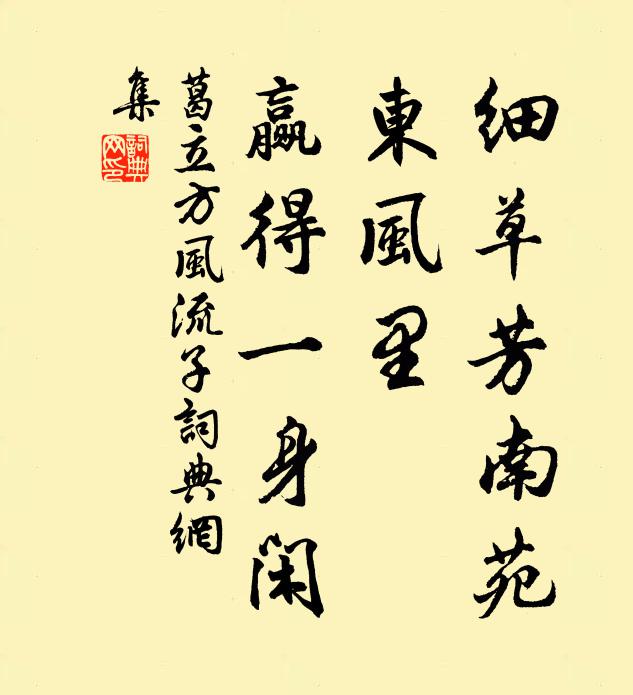 細草芳南苑
東風里
贏得一身閑
葛立方風流子詞典網
集
詞典
网印